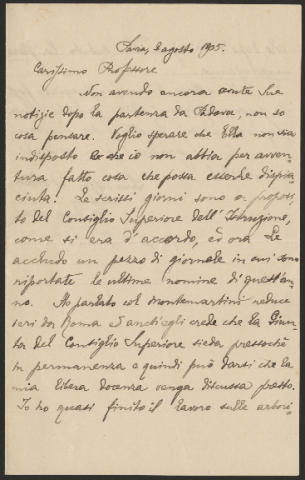 Pavia, 2 agosto 1905.
Carissimo Professore
Non avendo ancora avute Sue
notizie dopo la partenza da Padova, non so
cosa pensare. Voglio sperare che Ella non sia
indisposto e che io non abbia per avven-
tura fatto cosa che possa esserle dispia-
ciuta! Le scrissi giorni sono a proposi-
to del Consiglio Superiore dell'Istruzione,
come si era d'accordo, ed ora Le
accludo un pezzo di giornale in cui sono
riportate le ultime nomine di quest'an-
no. Ho parlato col Montemartini reduce
ieri da Roma ed anch'egli crede che la Giun-
ta del Consiglio Superiore sieda pressochè
in permanenza e quindi può darsi che la
mia libera docenza venga discussa presto.
Io ho quasi finito il lavoro sulle arbori-